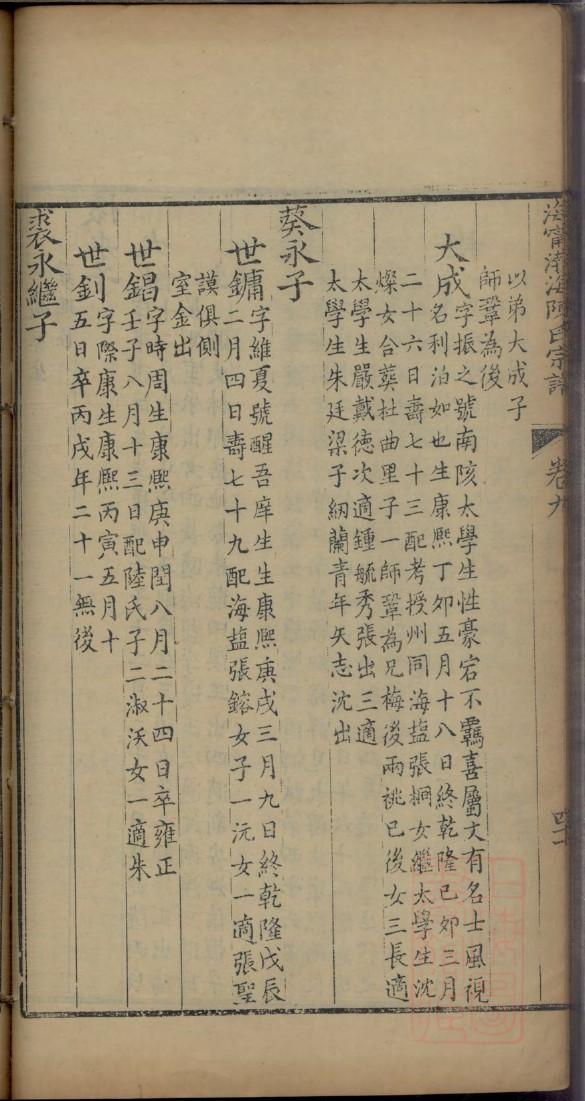 海寧渤海陳氏宗譜
卷九
以弟大成子
師鞏為後
大成字振之號南陔太學生性豪宕不羈喜屬文有名士風視
名利泊如也生康熙丁卯五月十八日終乾隆己卯三月
二十六日壽七十三配考授州同海塩張桐女繼太學生沈
燦女合葬杜曲里子一師鞏為兄梅後兩祧已後女三長適
太學生嚴戴德次適鍾毓秀張出三適
太學生朱廷梁子納蘭青年矢志沈出
葵永子
世鏞字維夏號醒吾庠生生康熙庚戌三月九日終乾隆戊辰
二月四日壽七十九配海塩張鎔女子一沅女一適張聖
謨俱側
室金出
世錩字時周生康熙庚申閏八月二十四日卒雍正
壬子八月十三日配陸氏子二淑沃女一適朱
世釗字際康生康熙丙寅五月十
五日卒丙戌年二十一無後
裘永繼子